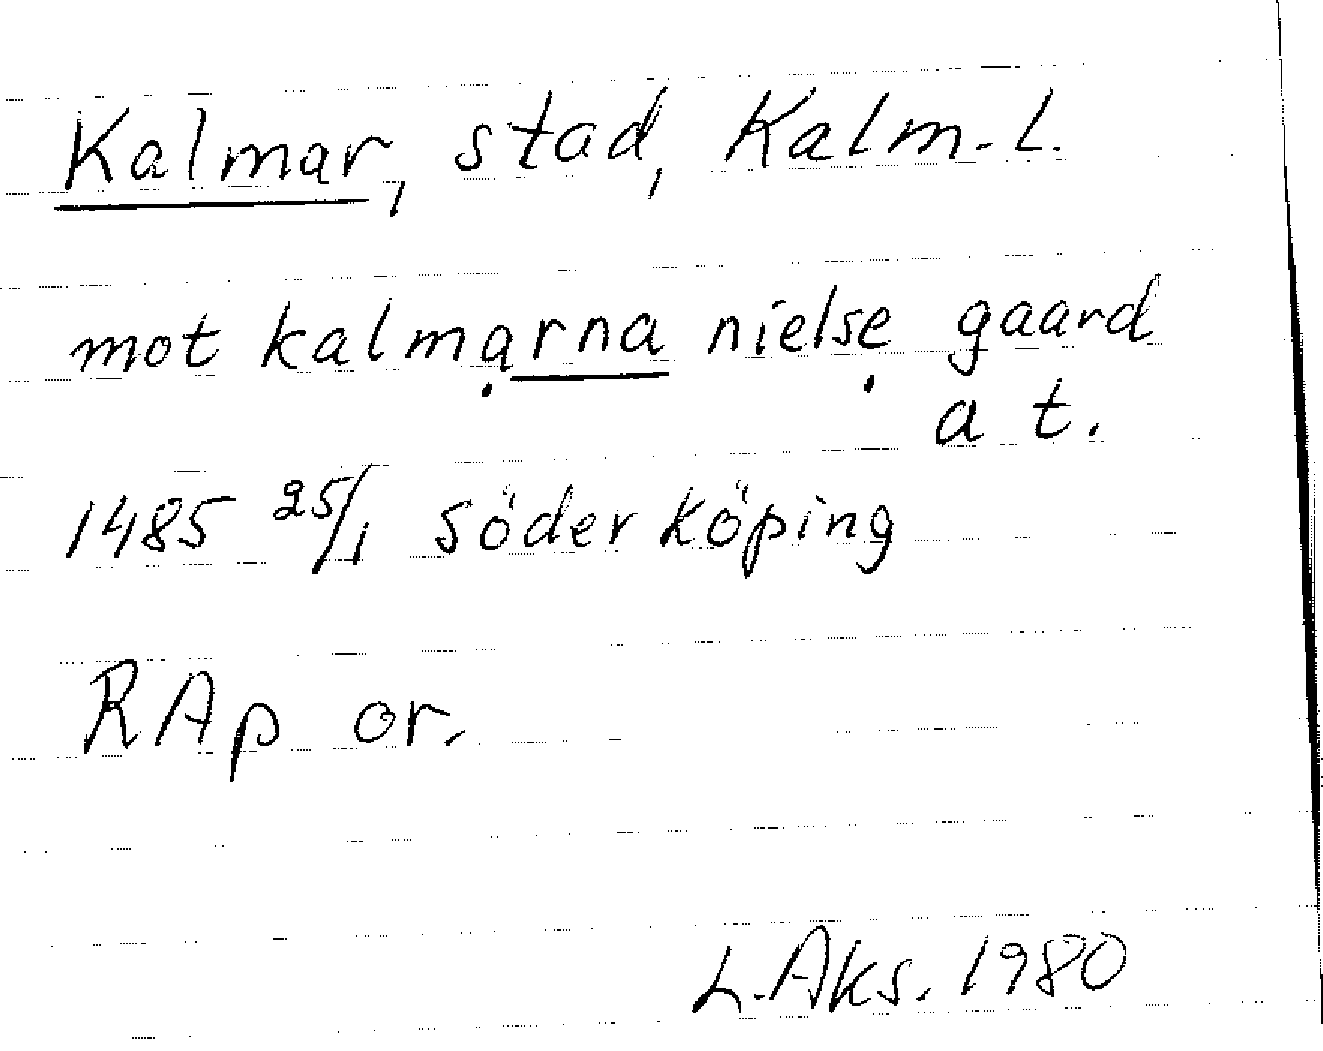 Kalmar, stad, Kalm. l.
mot kalmarna nielse gaard
a t.
1485 25/1 Söderköping
RAp or.
L. Aks. 1980